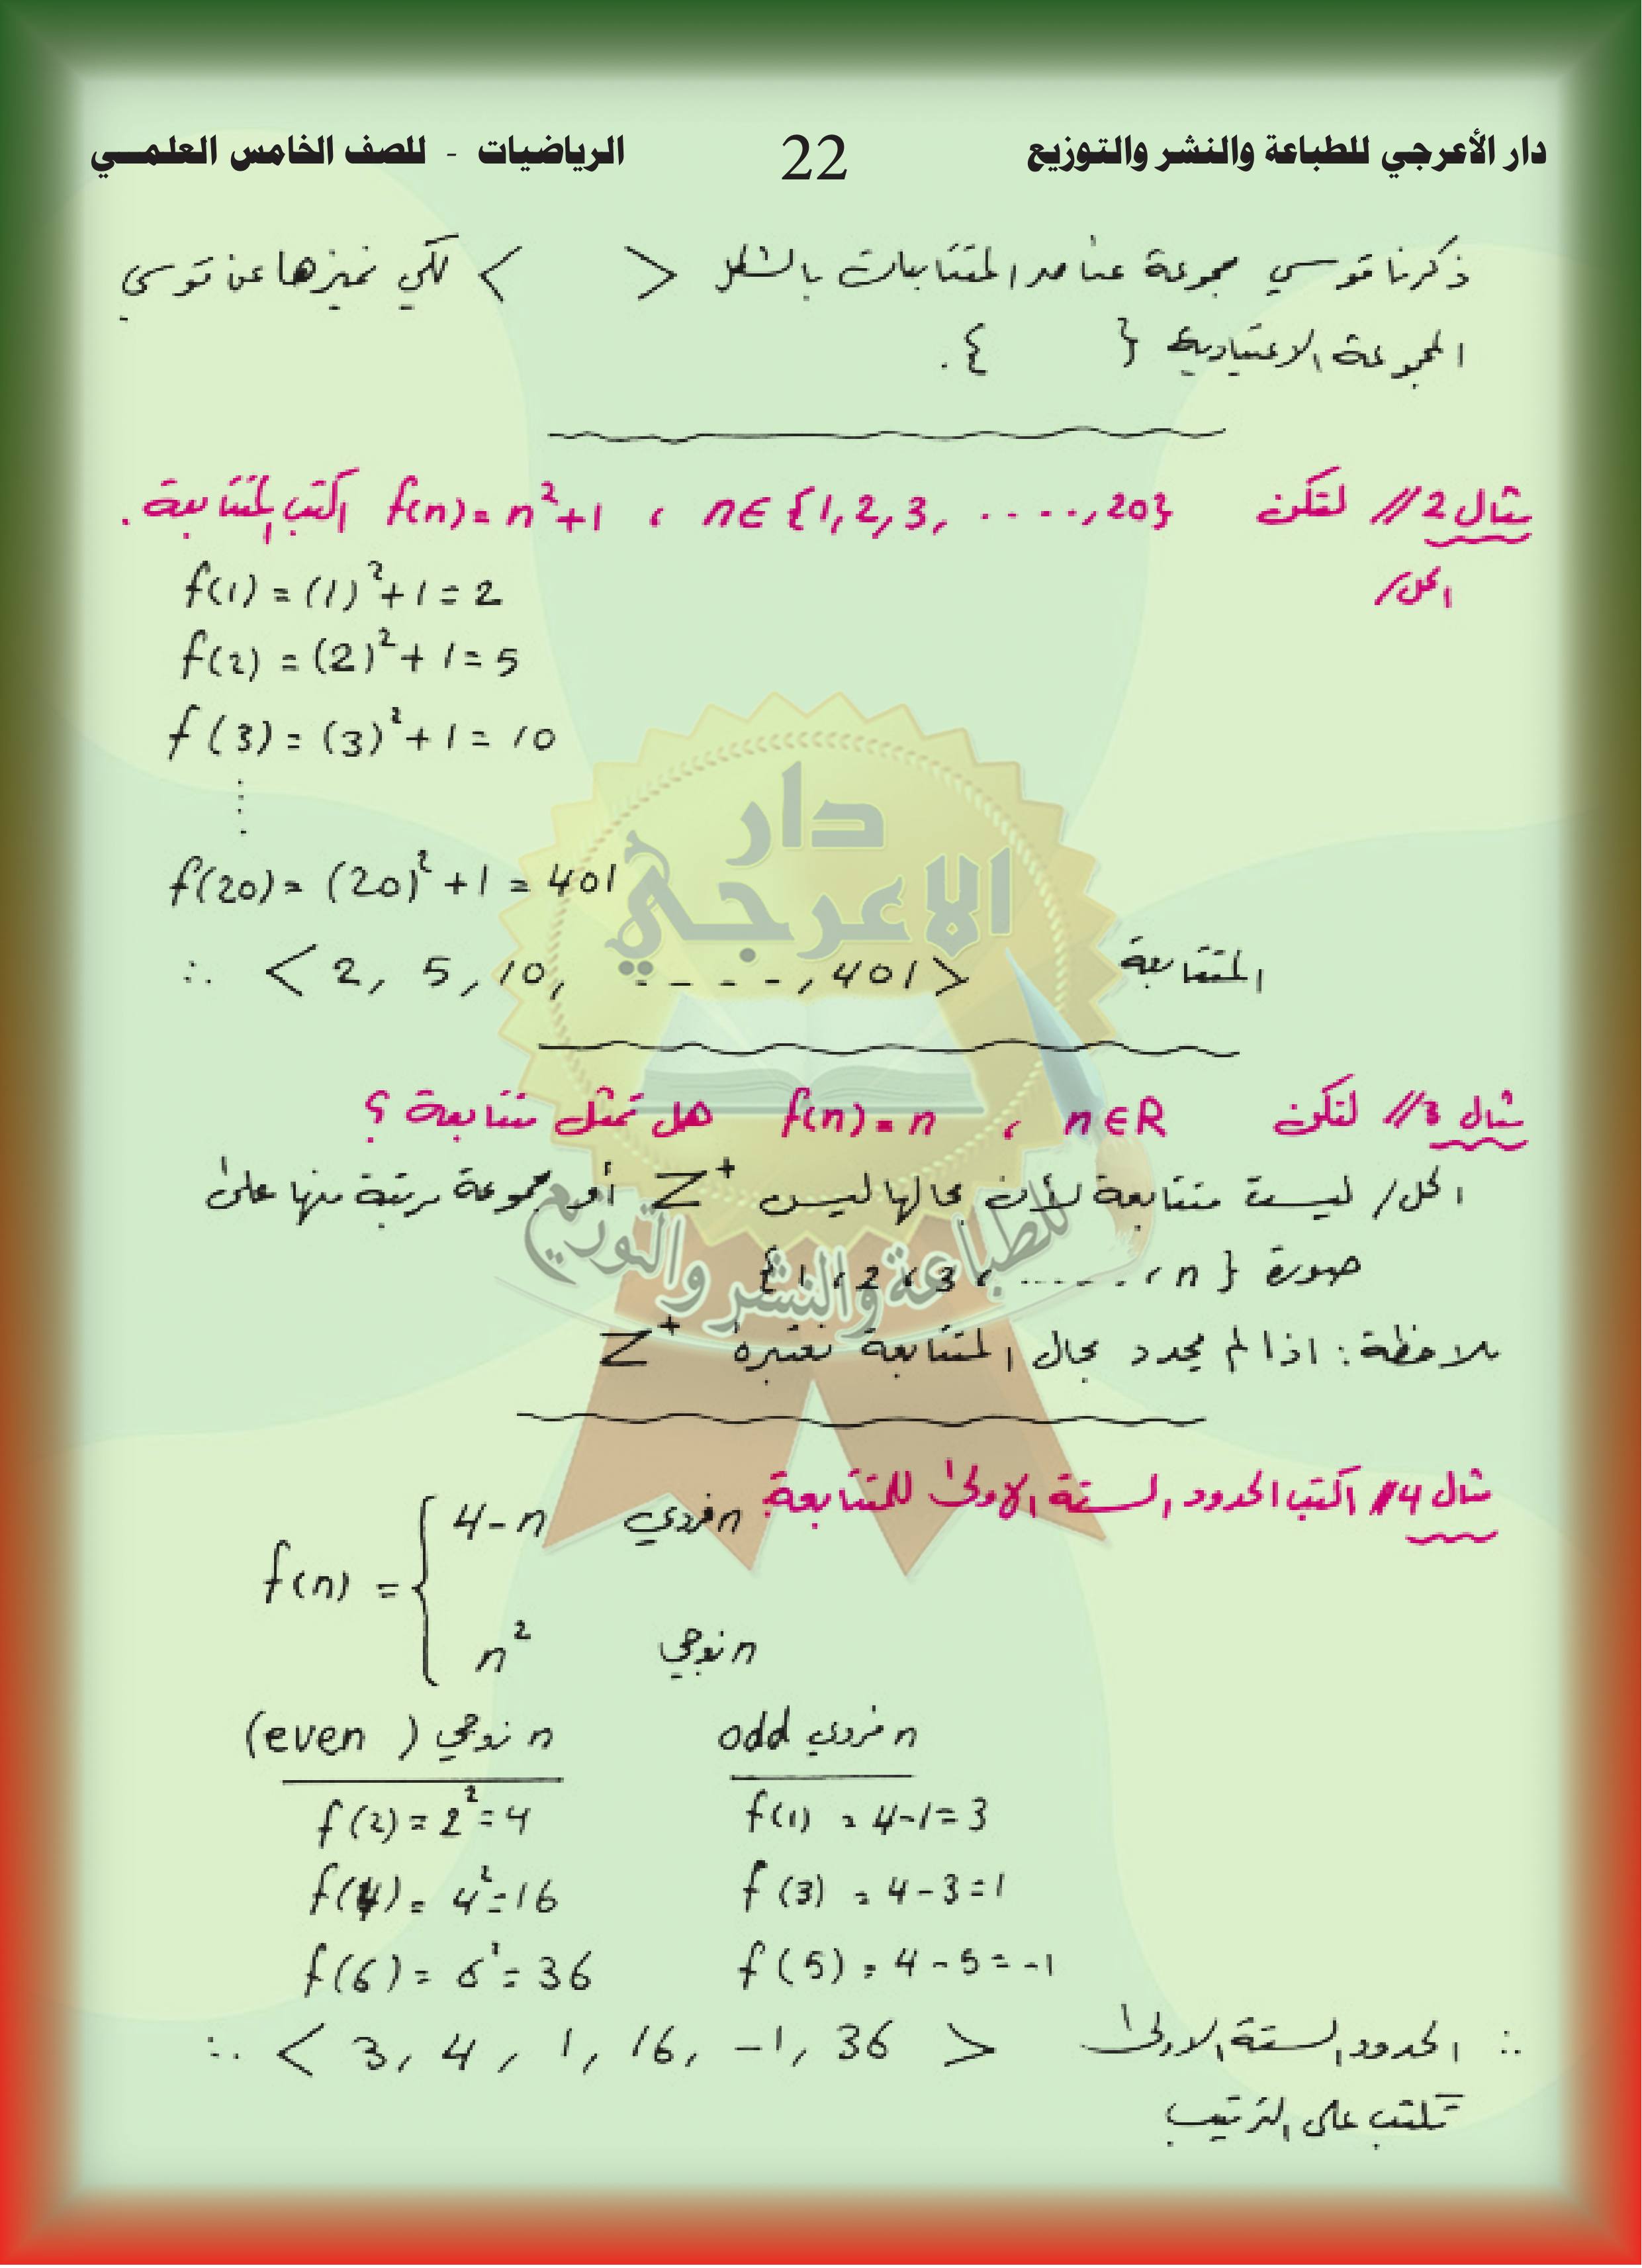 دار الأعرجي للطباعة والنشر والتوزيع 22 الرياضيات - للصف الخامس العلمــي
ذكرنا قوسي مجموعة عناصر المتتابعات بالشكل < > لكي نميزها عن قوسي
المجموعة الاعتيادية { }.
مثال 2// لتكن f(n)=n²+1 ، n∈{1,2,3,....,20} اكتب المتتابعة.
الحل/
f(1)=(1)²+1=2
f(2)=(2)²+1=5
f(3)=(3)²+1=10
⋮
f(20)=(20)²+1=401
∴ <2, 5, 10, ----, 401> المتتابعة
مثال 3// لتكن f(n)=n ، n∈R هل تمثل متتابعة ؟
الحل/ ليست متتابعة لأن مجالها ليس Z⁺ أو مجموعة مرتبة منها على
صورة {1،2،3،......،n}
ملاحظة: اذا لم يحدد مجال المتتابعة نعتبره Z⁺
مثال 4// اكتب الحدود الستة الاولى للمتتابعة:
f(n) = { 4-n n فردي
n² n زوجي
n فردي odd n زوجي (even)
f(1)=4-1=3 f(2)=2²=4
f(3)=4-3=1 f(4)=4²=16
f(5)=4-5=-1 f(6)=6²=36
∴ الحدود الستة الاولى ∴ <3, 4, 1, 16, -1, 36>
تكتب على الترتيب
دار
الاعرجي
للطباعة والنشر والتوزيع